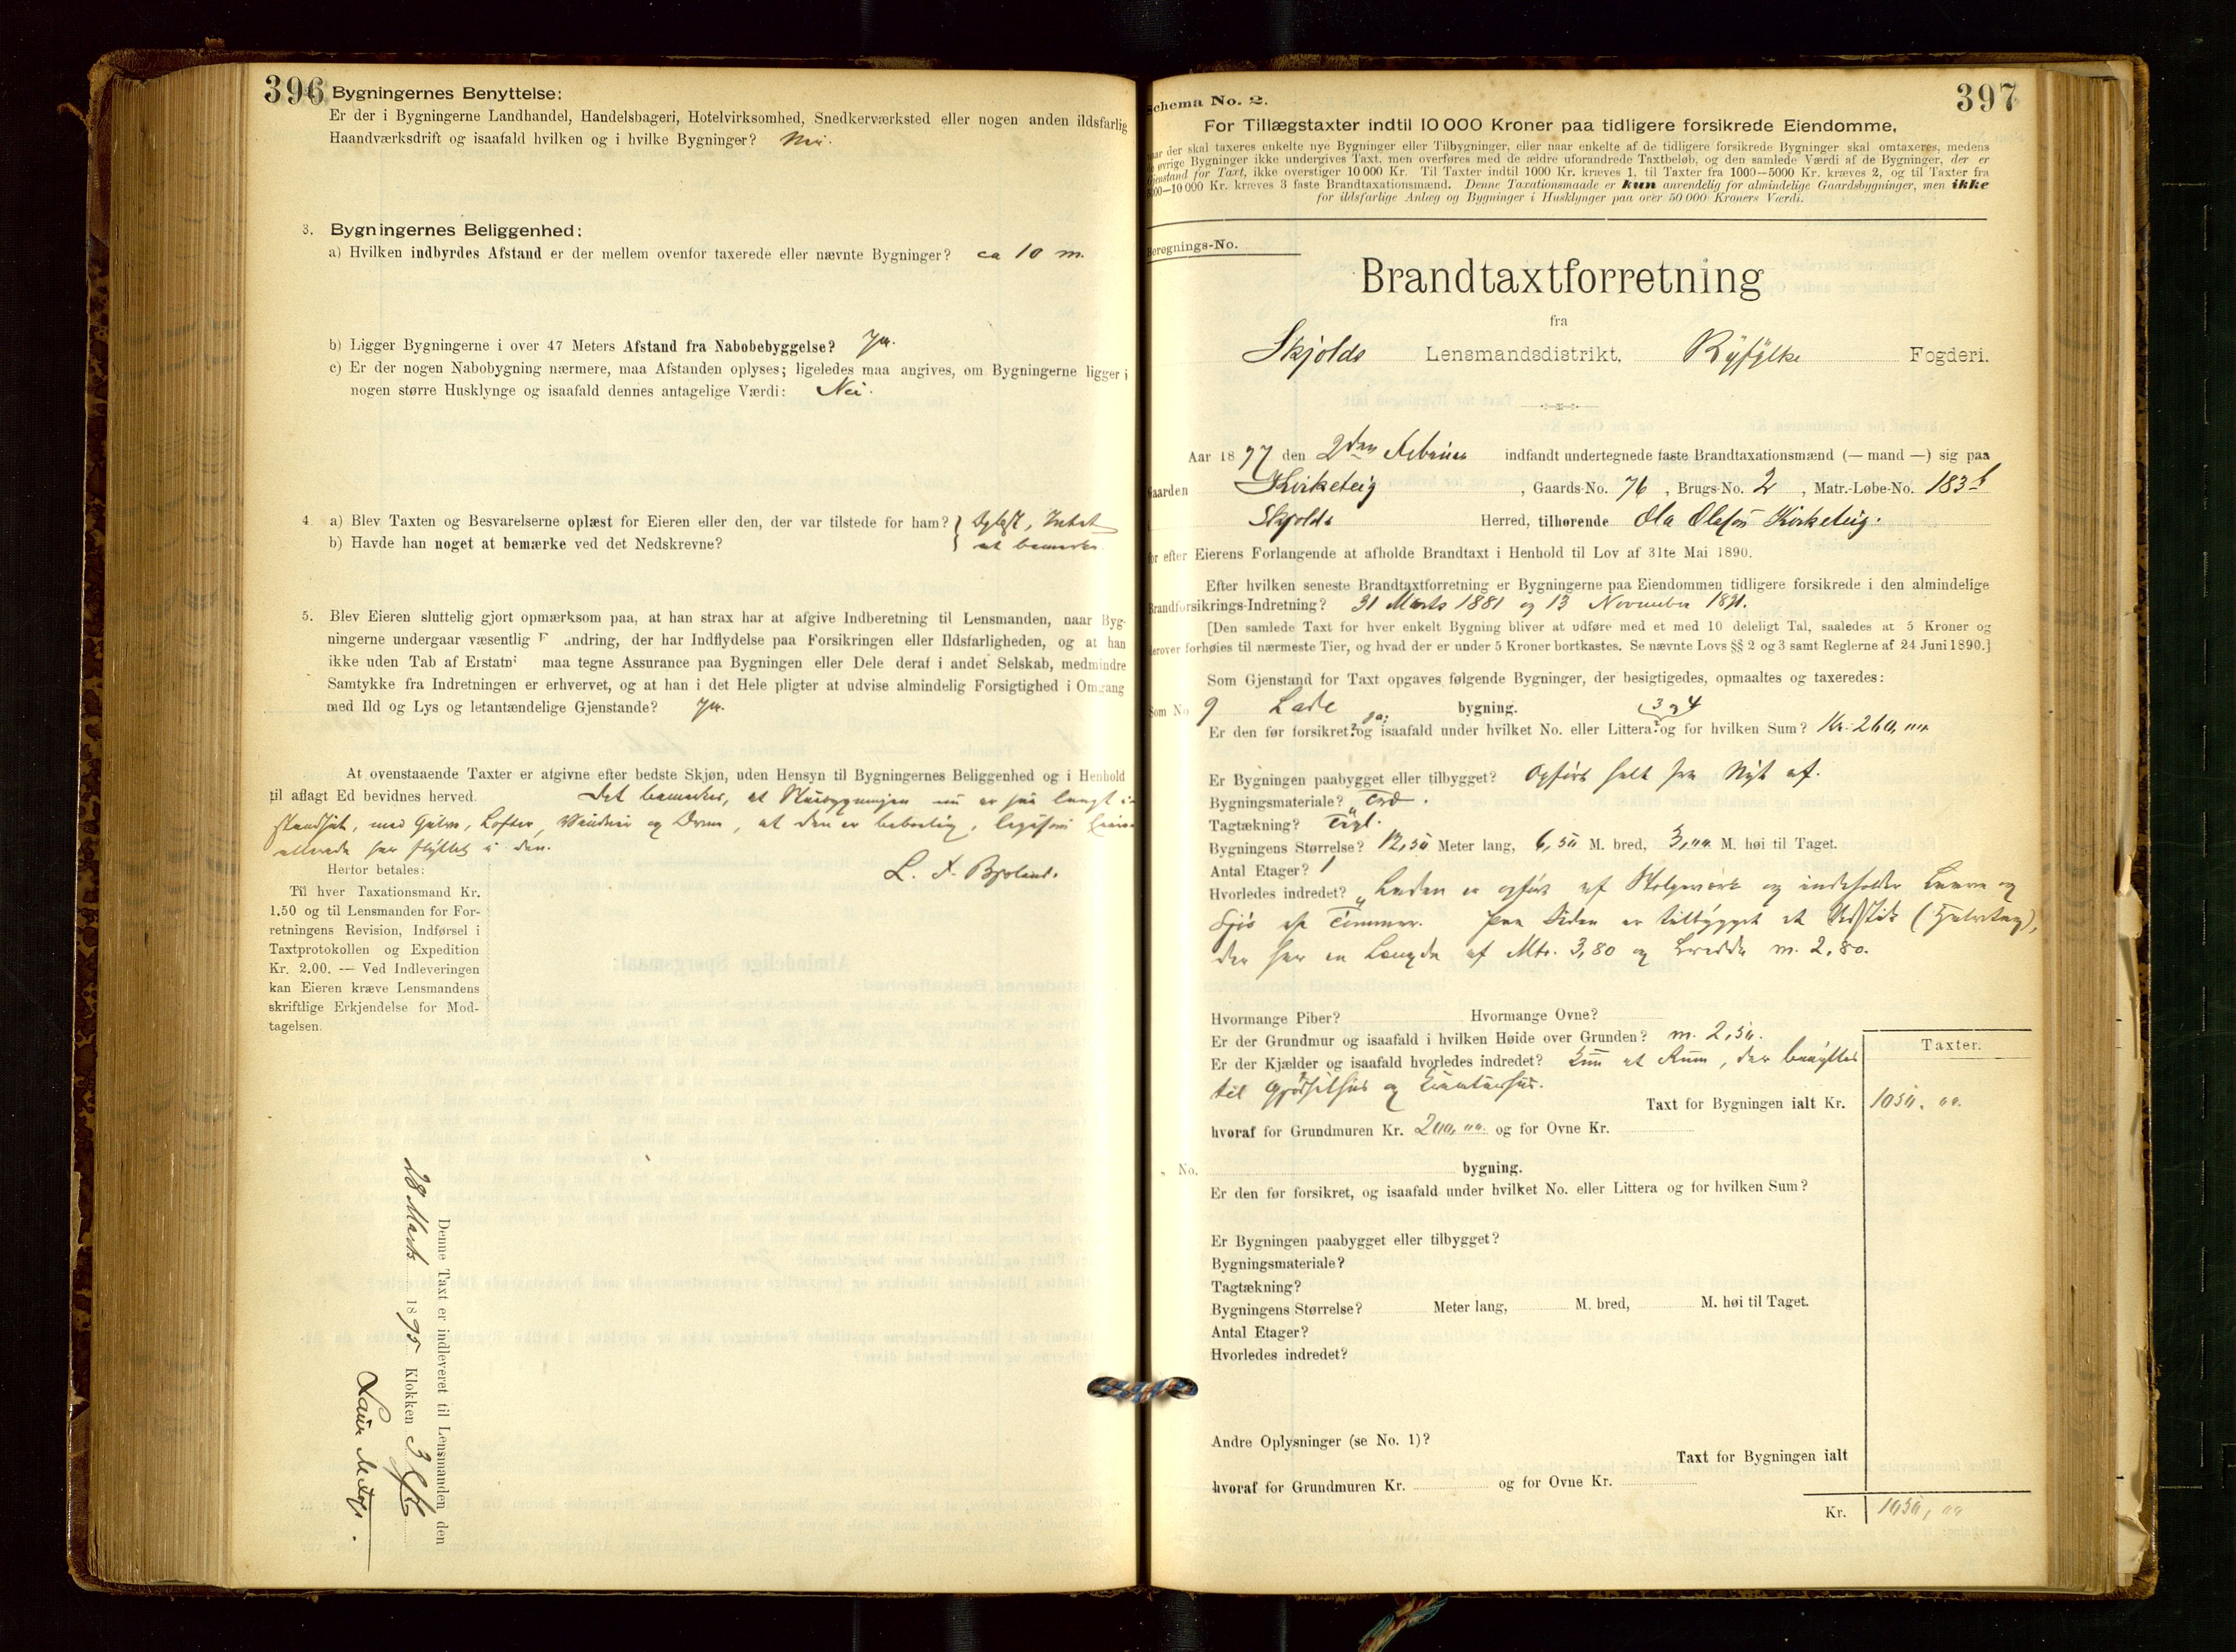 396 Bygningernes Benyttelse:
Er der i Bygningerne Landhandel, Handelsbageri, Hotelvirksomhed, Snedkerværksted eller nogen anden ildsfarlig
Haandværksdrift og isaafald hvilken og i hvilke Bygninger? Nei.
3. Bygningernes Beliggenhed:
a) Hvilken indbyrdes Afstand er der mellem ovenfor taxerede eller nævnte Bygninger? ca 10 m.
b) Ligger Bygningerne i over 47 Meters Afstand fra Nabobebyggelse? Ja.
c) Er der nogen Nabobygning nærmere, maa Afstanden oplyses; ligeledes maa angives, om Bygningerne ligger i
nogen større Husklynge og isaafald dennes antagelige Værdi: Nei.
4. a) Blev Taxten og Besvarelserne oplæst for Eieren eller den, der var tilstede for ham? Oplæst, Intet
b) Havde han noget at bemærke ved det Nedskrevne? at bemærke.
5. Blev Eieren sluttelig gjort opmærksom paa, at han strax har at afgive Indberetning til Lensmanden, naar Byg-
ningerne undergaar væsentlig F andring, der har Indflydelse paa Forsikringen eller Ildsfarligheden, og at han
ikke uden Tab af Erstatni maa tegne Assurance paa Bygningen eller Dele deraf i andet Selskab, medmindre
Samtykke fra Indretningen er erhvervet, og at han i det Hele pligter at udvise almindelig Forsigtighed i Omgang
med Ild og Lys og letantændelige Gjenstande? Ja.
At ovenstaaende Taxter er afgivne efter bedste Skjøn, uden Hensyn til Bygningernes Beliggenhed og i Henhold
til aflagt Ed bevidnes herved. Det bemærkes, at Vaabygningen nu er saa langt i-
standsat, med Gulve, Lofter, Vinduer og Døre, at den er beboelig, ligesom Eieren
allerede har flyttet i den.
L. A. Bjoland.
Herfor betales:
Til hver Taxationsmand Kr.
1.50 og til Lensmanden for For-
retningens Revision, Indførsel i
Taxtprotokollen og Expedition
Kr. 2.00. — Ved Indleveringen
kan Eieren kræve Lensmandens
skriftlige Erkjendelse for Mod-
tagelsen.
Denne Taxt er indleveret til Lensmanden den
28 Marts 1895 Klokken 3 Eft
397
Schema No. 2.
For Tillægstaxter indtil 10 000 Kroner paa tidligere forsikrede Eiendomme,
naar der skal taxeres enkelte nye Bygninger eller Tilbygninger, eller naar enkelte af de tidligere forsikrede Bygninger skal omtaxeres, medens
de øvrige Bygninger ikke undergives Taxt, men overføres med de ældre uforandrede Taxtbeløb, og den samlede Værdi af de Bygninger, der er
Gjenstand for Taxt, ikke overstiger 10 000 Kr. Til Taxter indtil 1000 Kr. kræves 1, til Taxter fra 1000—5000 Kr. kræves 2, og til Taxter fra
5000—10 000 Kr. kræves 3 faste Brandtaxationsmænd. Denne Taxationsmaade er kun anvendelig for almindelige Gaardsbygninger, men ikke
for ildsfarlige Anlæg og Bygninger i Husklynger paa over 50 000 Kroners Værdi.
Beregnings-No.
Brandtaxtforretning
fra
Skjolds Lensmandsdistrikt, Ryfylke Fogderi.
Aar 1897 den 2den Februar indfandt undertegnede faste Brandtaxationsmænd (— mand —) sig paa
Gaarden Kirketeig, Gaards-No. 76, Brugs-No. 2, Matr.-Løbe-No. 183 b
Skjolds Herred, tilhørende Ola Olesen Kirketeig.
for efter Eierens Forlangende at afholde Brandtaxt i Henhold til Lov af 31te Mai 1890.
Efter hvilken seneste Brandtaxtforretning er Bygningerne paa Eiendommen tidligere forsikrede i den almindelige
Brandforsikrings-Indretning? 31 Marts 1881 og 13 November 1891.
[Den samlede Taxt for hver enkelt Bygning bliver at udføre med et med 10 deleligt Tal, saaledes at 5 Kroner og
derover forhøies til nærmeste Tier, og hvad der er under 5 Kroner bortkastes. Se nævnte Lovs §§ 2 og 3 samt Reglerne af 24 Juni 1890.]
Som Gjenstand for Taxt opgaves følgende Bygninger, der besigtigedes, opmaaltes og taxeredes:
Som No 9 Lade bygning. 3 og 4
Er den før forsikret? ja; og isaafald under hvilket No. eller Littera? og for hvilken Sum? Kr. 260,00
Er Bygningen paabygget eller tilbygget? Opført helt fra Nyt af.
Bygningsmateriale? Træ.
Tagtækning? Tegl.
Bygningens Størrelse? 12,50 Meter lang, 6,50 M. bred, 3,00 M. høi til Taget.
Antal Etager? 1
Hvorledes indredet? Laden er opført af Stolpeværk og indeholder Laave og
Fjøs af Tømmer. Paa Siden er tilbygget et Udskud (Halvtag),
der har en Længde af Mtr. 3,80 og Bredde m. 2,80.
Hvormange Piber? Hvormange Ovne?
Er der Grundmur og isaafald i hvilken Høide over Grunden? m. 2,50.
Er der Kjælder og isaafald hvorledes indredet? Kun et Rum, der benyttes
til Gjødselhus og
Taxter.
Taxt for Bygningen ialt Kr. 1050. 00.
hvoraf for Grundmuren Kr. 200,00. og for Ovne Kr.
„ No. bygning.
Er den før forsikret, og isaafald under hvilket No. eller Littera og for hvilken Sum?
Er Bygningen paabygget eller tilbygget?
Bygningsmateriale?
Tagtækning?
Bygningens Størrelse? Meter lang, M. bred, M. høi til Taget.
Antal Etager?
Hvorledes indredet?
Andre Oplysninger (se No. 1)?
Taxt for Bygningen ialt
hvoraf for Grundmuren Kr. og for Ovne Kr.
Kr. 1050, 00